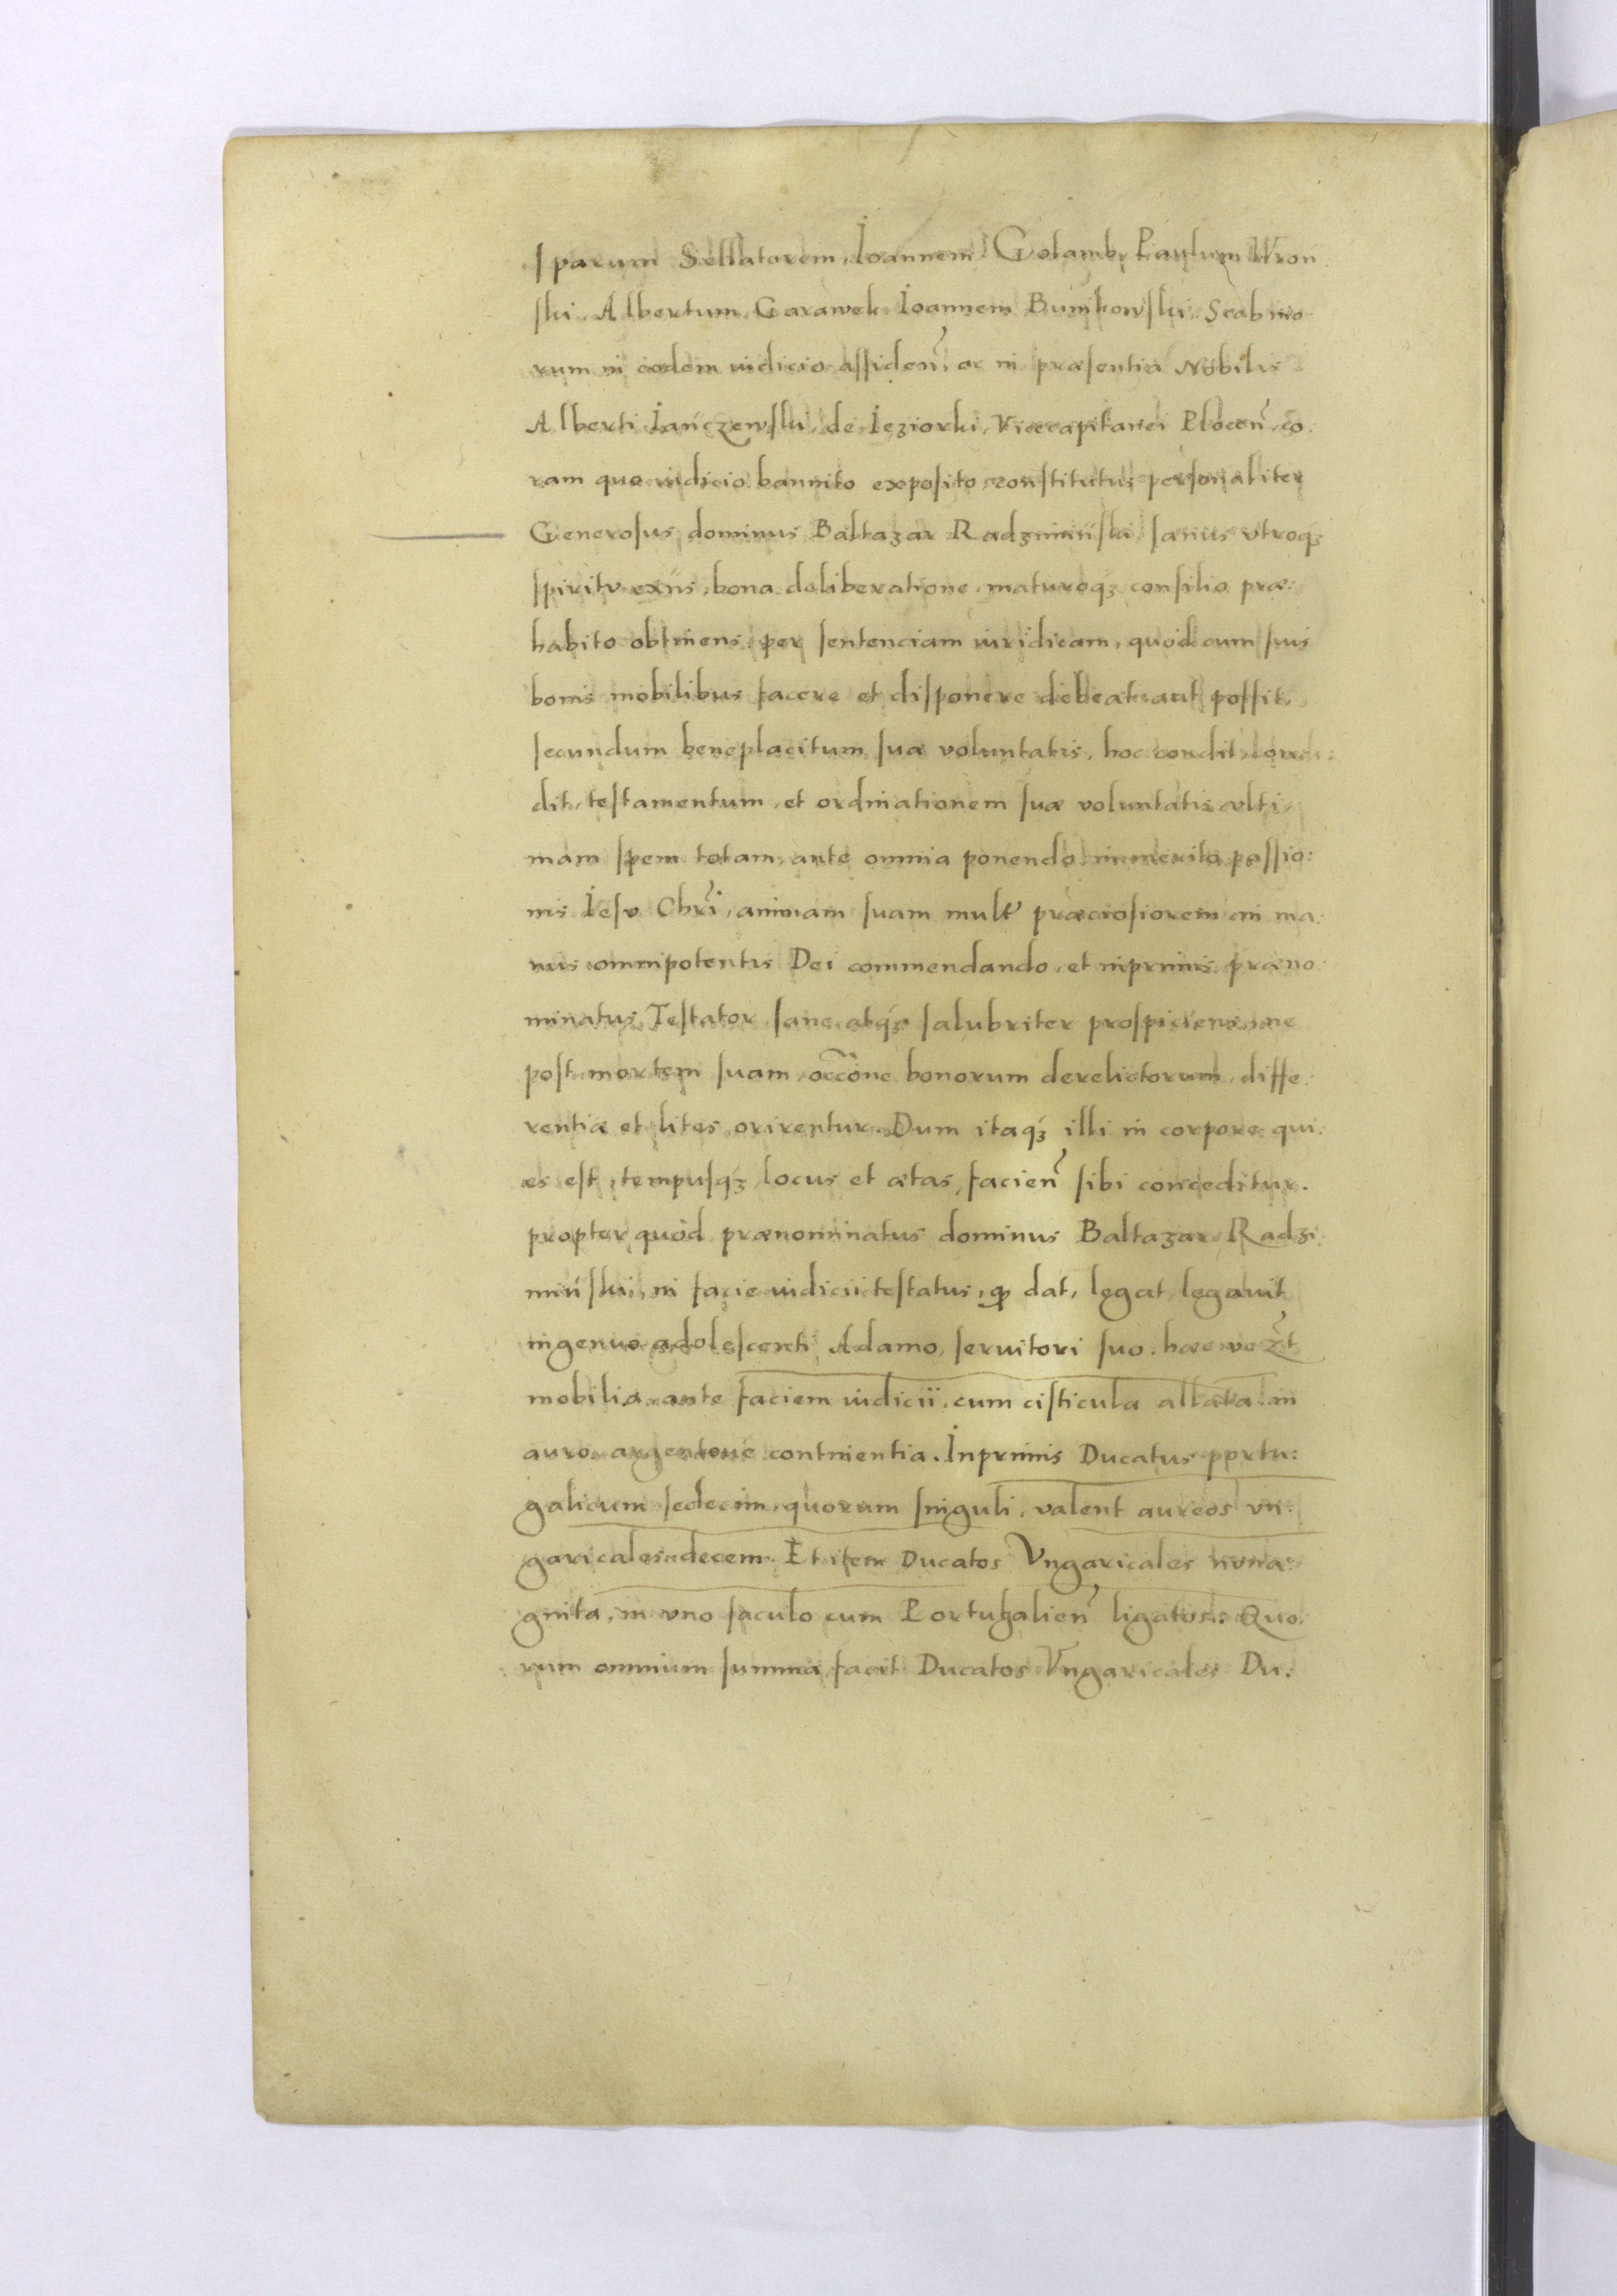 sparum Sellatorem, Ioannem Golamb, Paulum Wron
ski, Albertum Garawek, Ioannem Bunikowski, Scabino
rum in eodem iudicio assideñ, ac in præsentia Nobilis
Alberti Iańczewski, de Ieziorki, Vicecapitanei Ploceñ, co:
ram quo iudicio bannito exposito, constitutus personaliter
Generosus dominus Baltazar Radzimiński, sanus vtroqʒ
spiritu exñs, bona deliberatione, maturoqʒ consilio præ:
habito obtinens, per sentenciam iuridicam, quòd cum suis
bonis mobilibus facere et disponere debeat, aut possit,
secundum beneplacitum suæ voluntatis, hoc condit, condi:
dit, testamentum, et ordinationem suæ voluntatis vlti,
mam spem totam, ante omnia ponendo in merito passio:
nis Iesv Chri, animam suam mult præciosiorem in ma:
nus omnipotentis Dei commendando, et inprimis præno:
minatus Testator, sane atqʒ salubriter prospiciens, ne
post mortem suam, occõne bonorum derelictorum, diffe:
rentiæ et lites orirentur. Dum itaqʒ illi in corpore qui:
es est, tempusqʒ, locus et ætas, facieñ sibi conceditur.
propter quòd prænominatus dominus Baltazar Radzi:
miński, in facie iudicii testatus, ꝙ dat, legat, legauit
ingenuo adolescenti Adamo, seruitori suo. hæc
mobilia, ante faciem iudicii, cum cisticula allata in
auro argentoue continentia. Inprimis Ducatus portu:
galicum sedecim, quorum singuli, valent aureos vn:
garicales decem. Et item Ducatos Vngaricales nona:
ginta, in vno saculo cum Portugalieñ ligatos. Quo:
rum omnium summa, facit Ducatos Vngaricales Du: